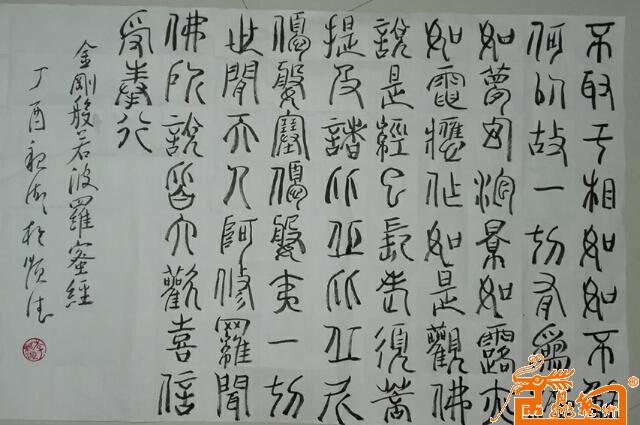 不取于相如如不動
何以故一切有爲法
如夢幻泡影如露亦
如電應作如是觀佛
說是經已長老須菩
提及諸比丘比丘尼
優婆塞優婆夷一切
世間天人阿修羅聞
佛所說皆大歡喜信
受奉行
金剛般若波羅蜜經
丁酉